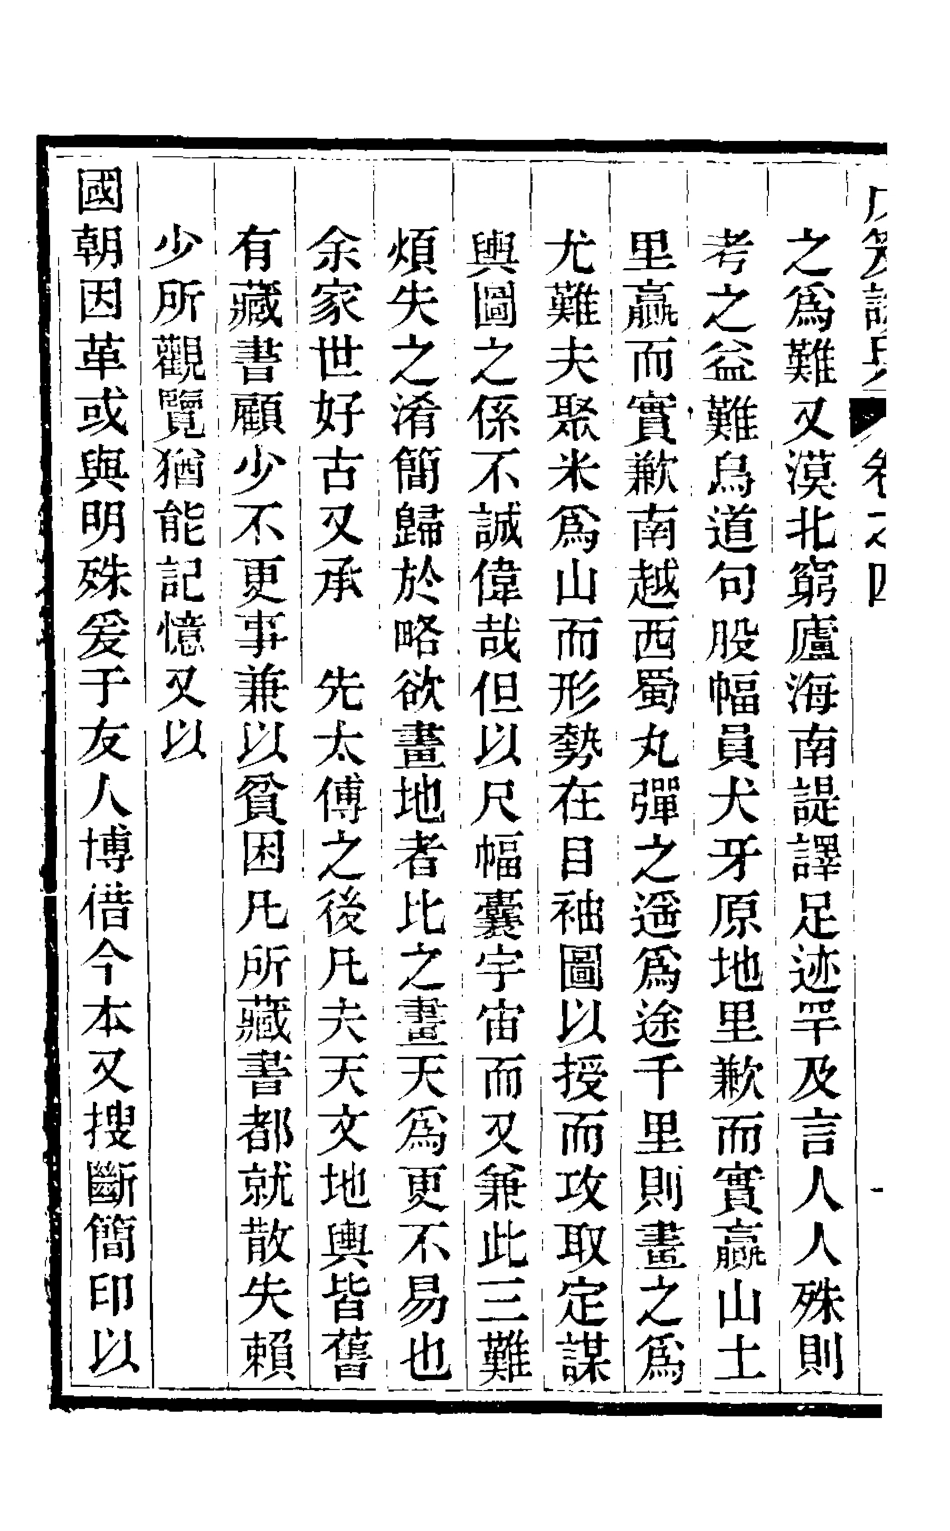 卷之四
之爲難又漠北窮廬海南諟譯足迹罕及言人人殊則
考之益難鳥道句股幅員犬牙原地里歉而實贏山土
里贏而實歉南越西蜀丸彈之遥爲途千里則畫之爲
尤難夫聚米爲山而形勢在目袖圖以授而攻取定謀
輿圖之係不誠偉哉但以尺幅囊宇宙而又兼此三難
煩失之淆簡歸於略欲畫地者比之畫天爲更不易也
余家世好古又承　先太傅之後凡夫天文地輿皆舊
有藏書顧少不更事兼以貧困凡所藏書都就散失賴
少所觀覽猶能記憶又以
國朝因革或與明殊爰于友人博借今本又搜斷簡印以